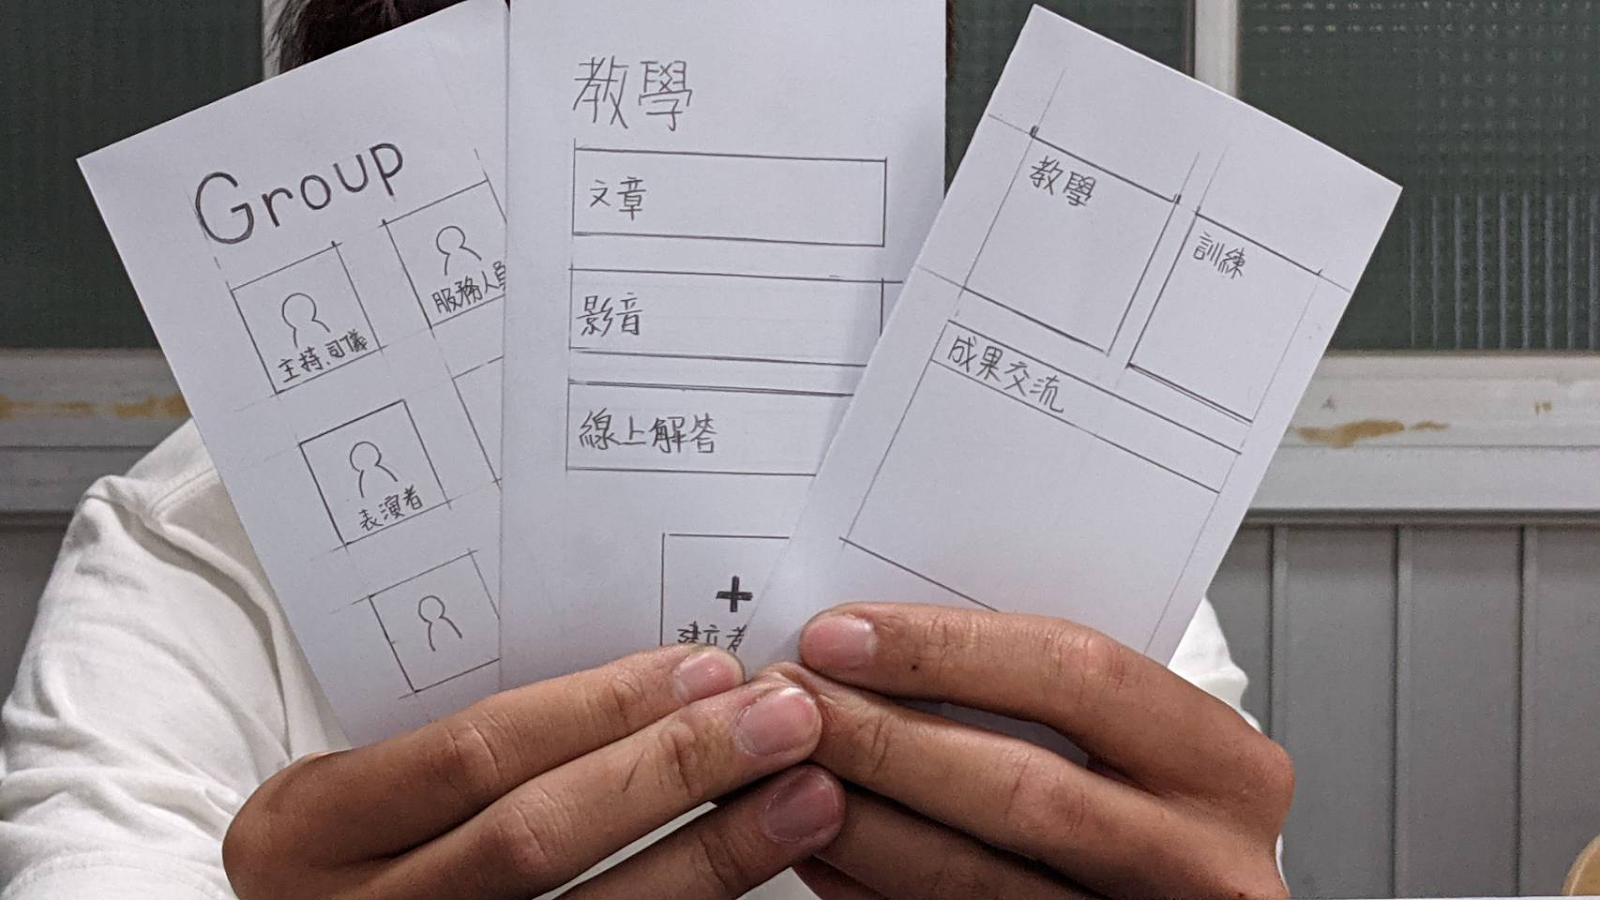 Group
主持.司儀
服務人員
表演者
教學
文章
影音
線上解答
+
教學
訓練
成果交流